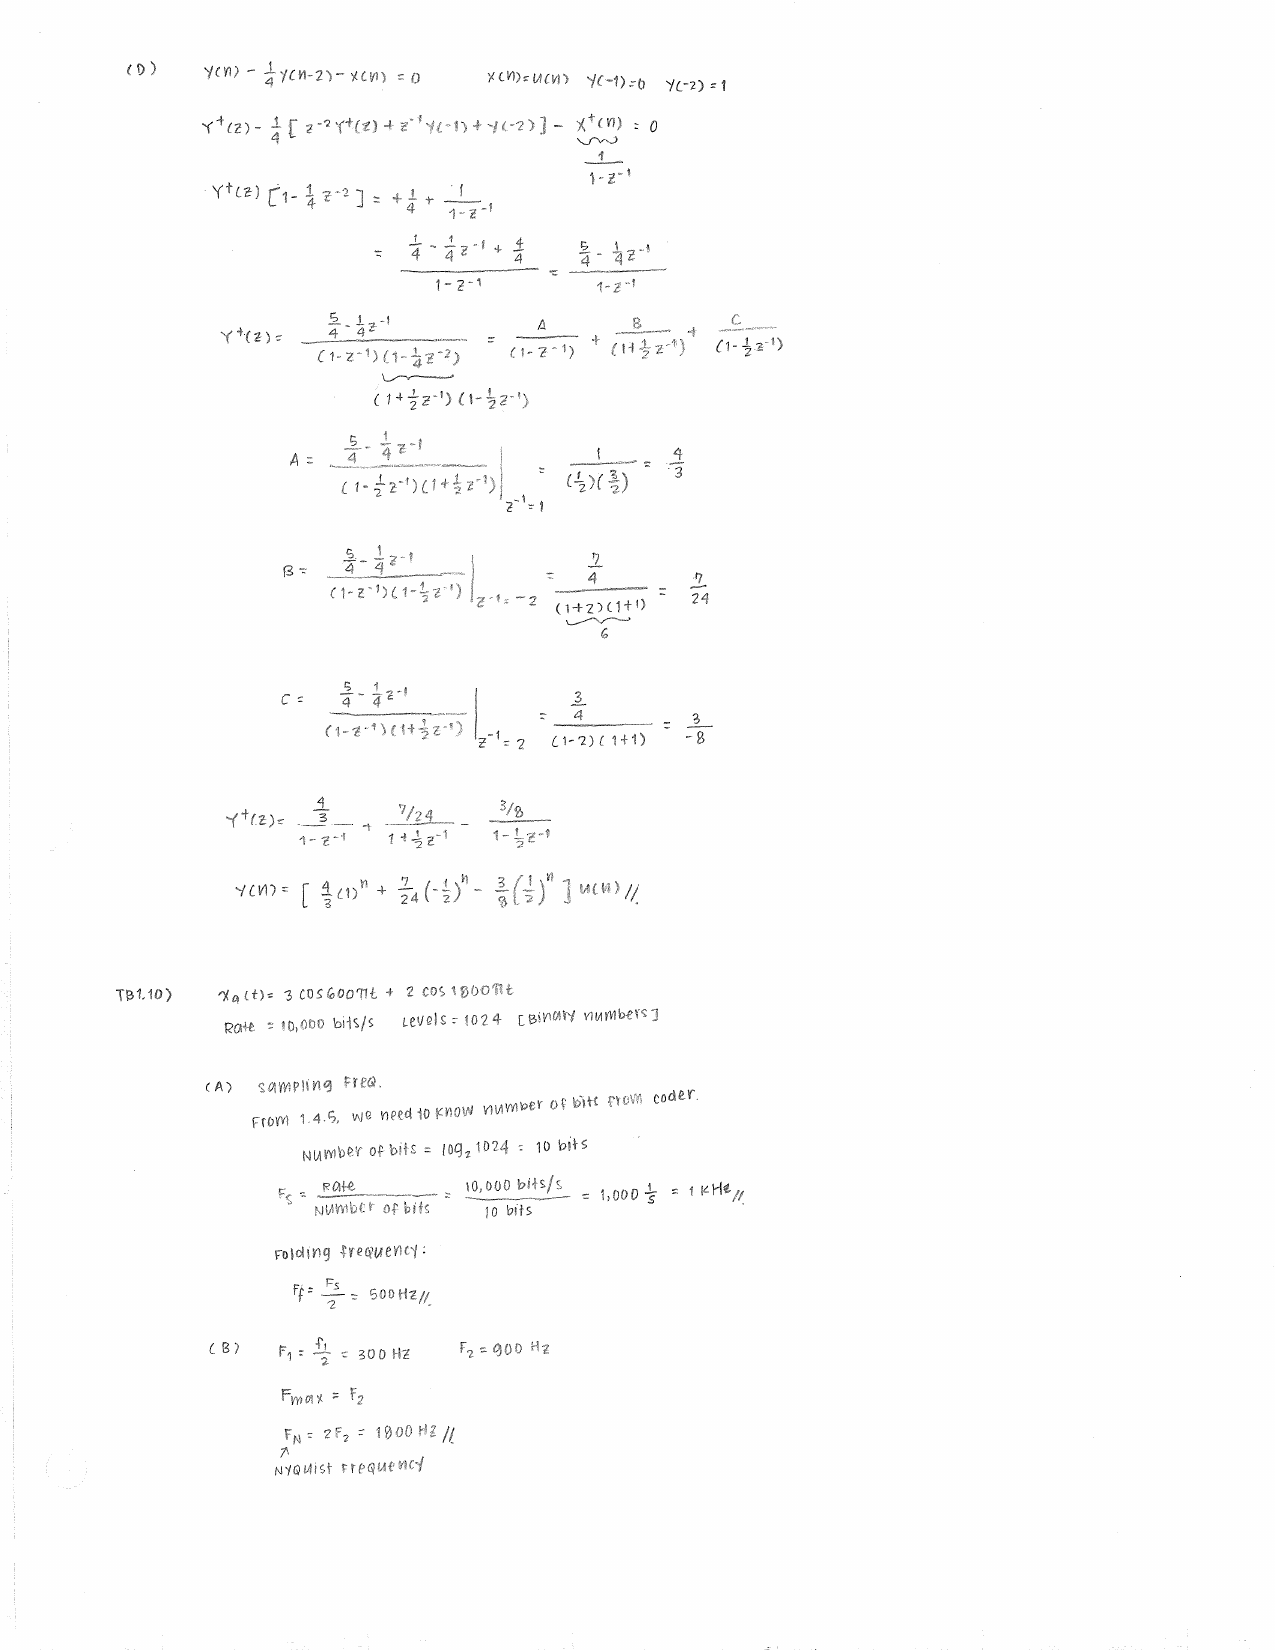 (D) y(n) - 1/4 y(n-2) - x(n) = 0 x(n)=u(n) y(-1)=0 y(-2)=1
Y⁺(z) - 1/4 [ z⁻²Y⁺(z) + z⁻¹y(-1) + y(-2) ] - X⁺(n) = 0
1/(1-z⁻¹)
Y⁺(z) [1 - 1/4 z⁻²] = + 1/4 + 1/(1-z⁻¹)
= (1/4 - 1/4 z⁻¹ + 4/4)/(1-z⁻¹) = (5/4 - 1/4 z⁻¹)/(1-z⁻¹)
Y⁺(z) = (5/4 - 1/4 z⁻¹)/((1-z⁻¹)(1-1/4 z⁻²)) = A/(1-z⁻¹) + B/(1+1/2 z⁻¹) + C/(1-1/2 z⁻¹)
(1+1/2 z⁻¹)(1-1/2 z⁻¹)
A = (5/4 - 1/4 z⁻¹)/((1-1/2 z⁻¹)(1+1/2 z⁻¹)) | z⁻¹=1 = 1/((1/2)(3/2)) = 4/3
B = (5/4 - 1/4 z⁻¹)/((1-z⁻¹)(1-1/2 z⁻¹)) | z⁻¹=-2 = (7/4)/((1+2)(1+1)) = 7/24
6
C = (5/4 - 1/4 z⁻¹)/((1-z⁻¹)(1+1/2 z⁻¹)) | z⁻¹=2 = (3/4)/((1-2)(1+1)) = 3/-8
Y⁺(z) = (4/3)/(1-z⁻¹) + (7/24)/(1+1/2 z⁻¹) - (3/8)/(1-1/2 z⁻¹)
y(n) = [ 4/3 (1)ⁿ + 7/24 (-1/2)ⁿ - 3/8 (1/2)ⁿ ] u(n) //
TB1.10) xₐ(t) = 3 cos600πt + 2 cos1800πt
Rate = 10,000 bits/s Levels = 1024 [Binary numbers]
(A) Sampling Freq.
From 1.4.5, we need to know number of bits from coder.
Number of bits = log₂1024 = 10 bits
Fs = Rate/Number of bits = 10,000 bits/s / 10 bits = 1,000 1/s = 1 KHz //
Folding frequency:
Ff = Fs/2 = 500Hz //
(B) F₁ = f₁/2 = 300 Hz F₂ = 900 Hz
Fmax = F₂
FN = 2F₂ = 1800 Hz //
↑
Nyquist Frequency